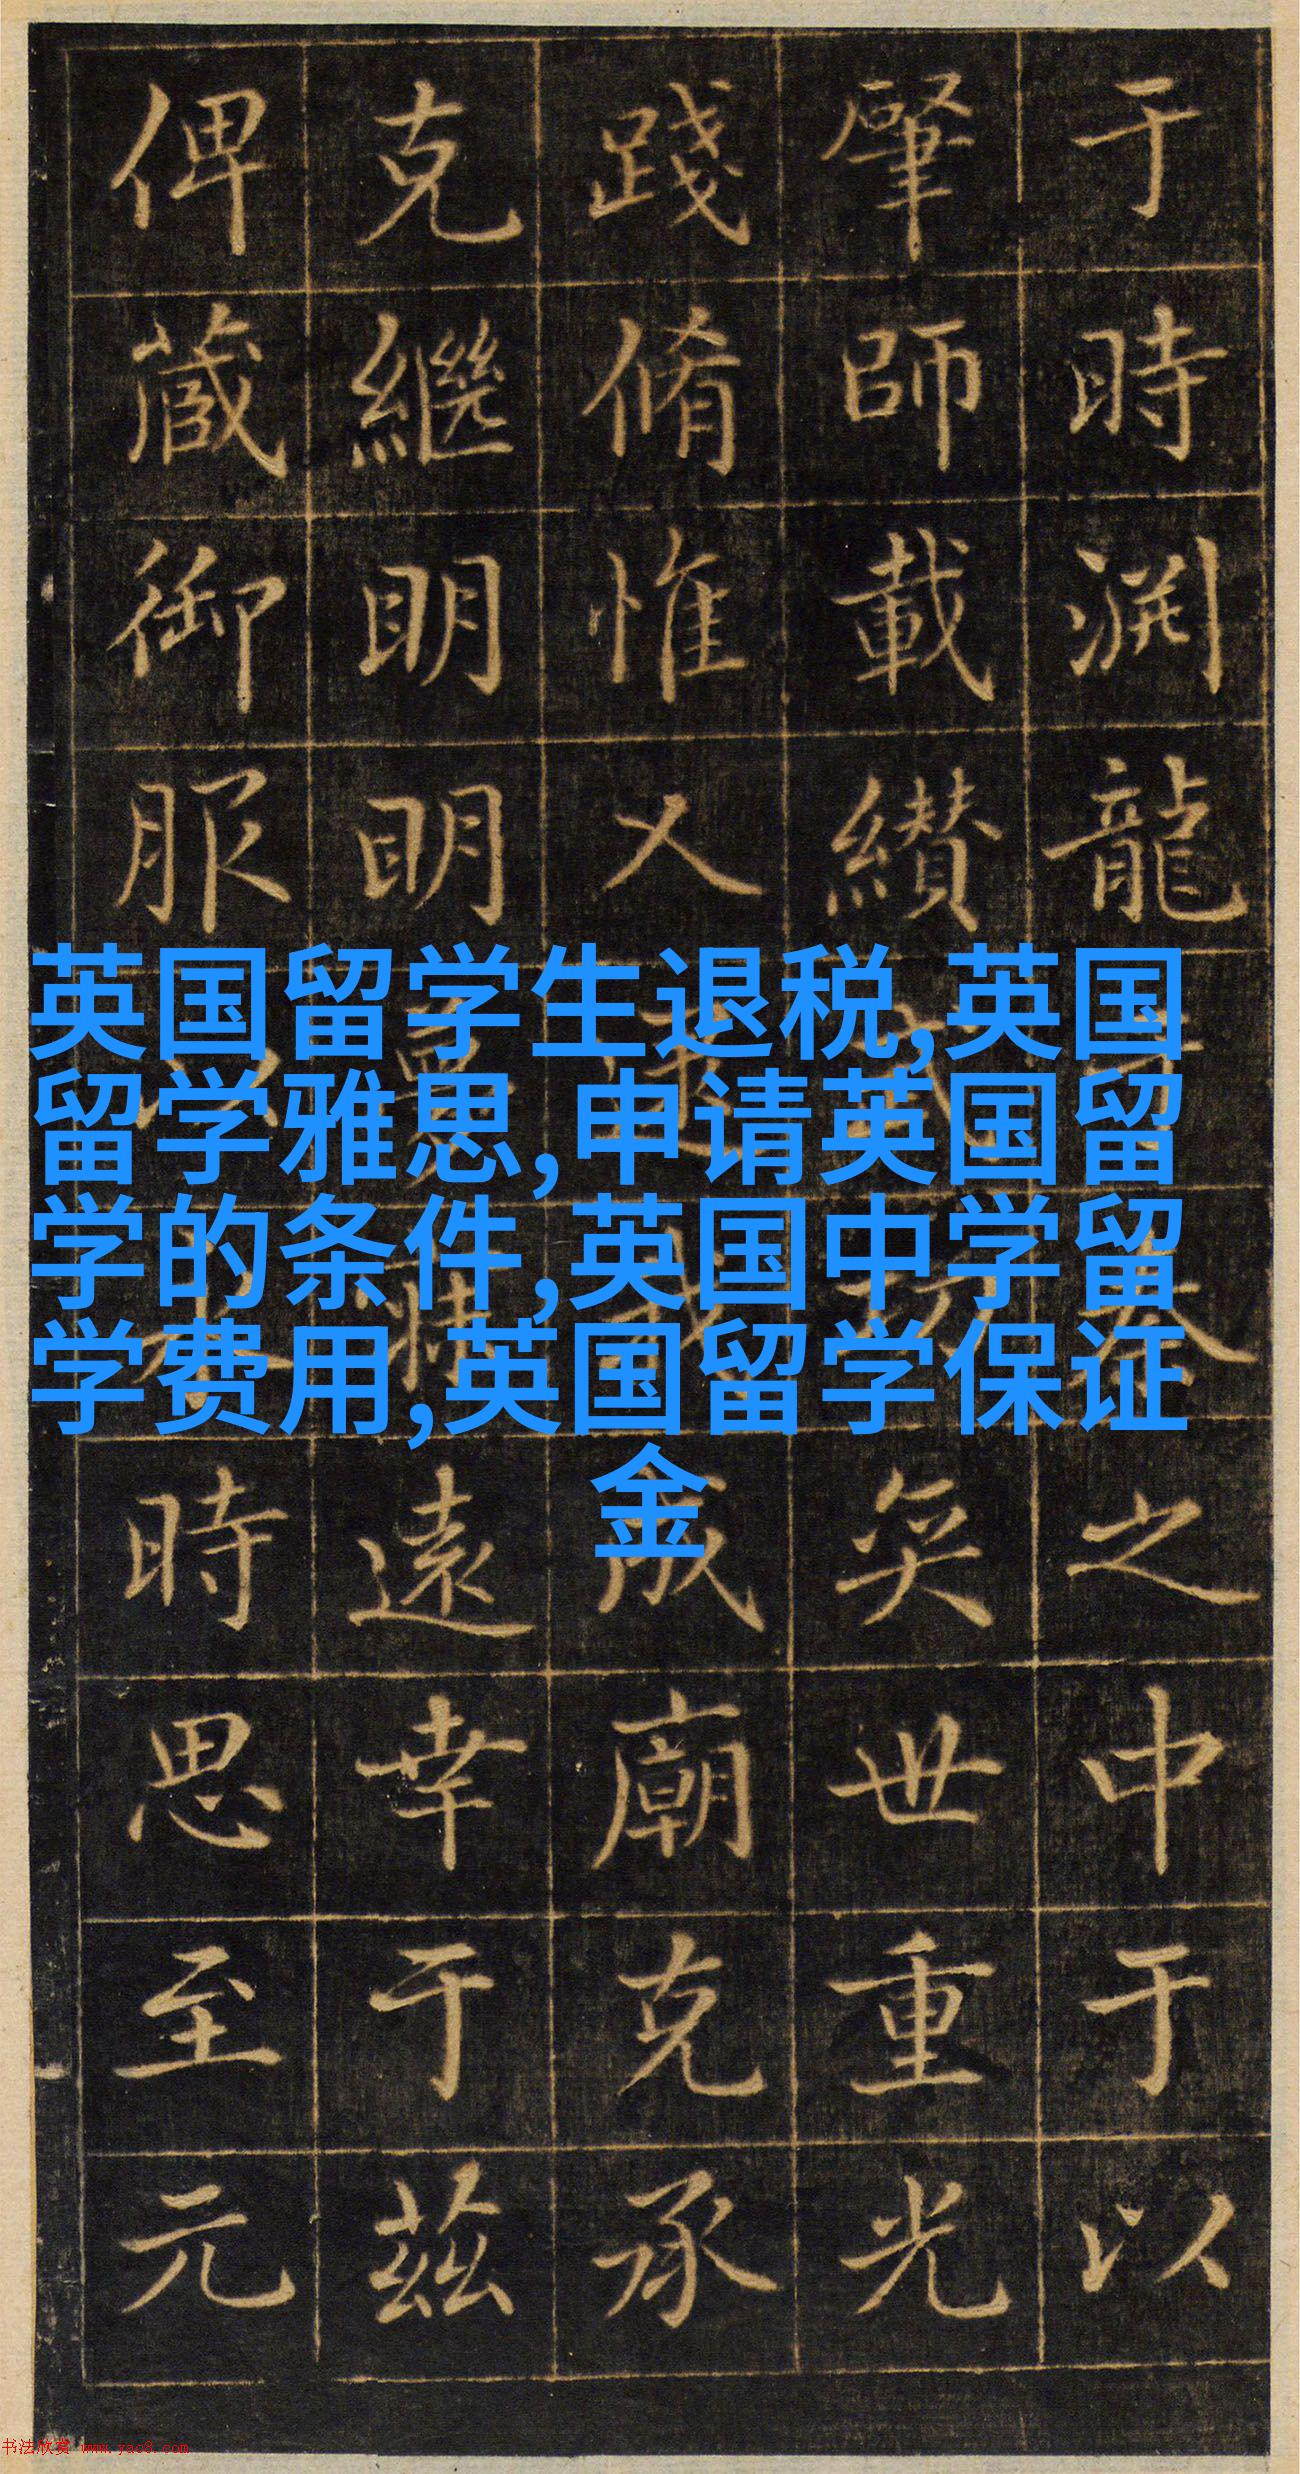 于時渊龍之中于以
肇師載纘奕世重光
踐脩惟乂我成廟克承
克繼明明遠幸于茲
俾蔵御服時思至元
英国留学生退税,英国
留学雅思,申请英国留
学的条件,英国中学留
学费用,英国留学保证
金
书法欣赏 www.yac8.com